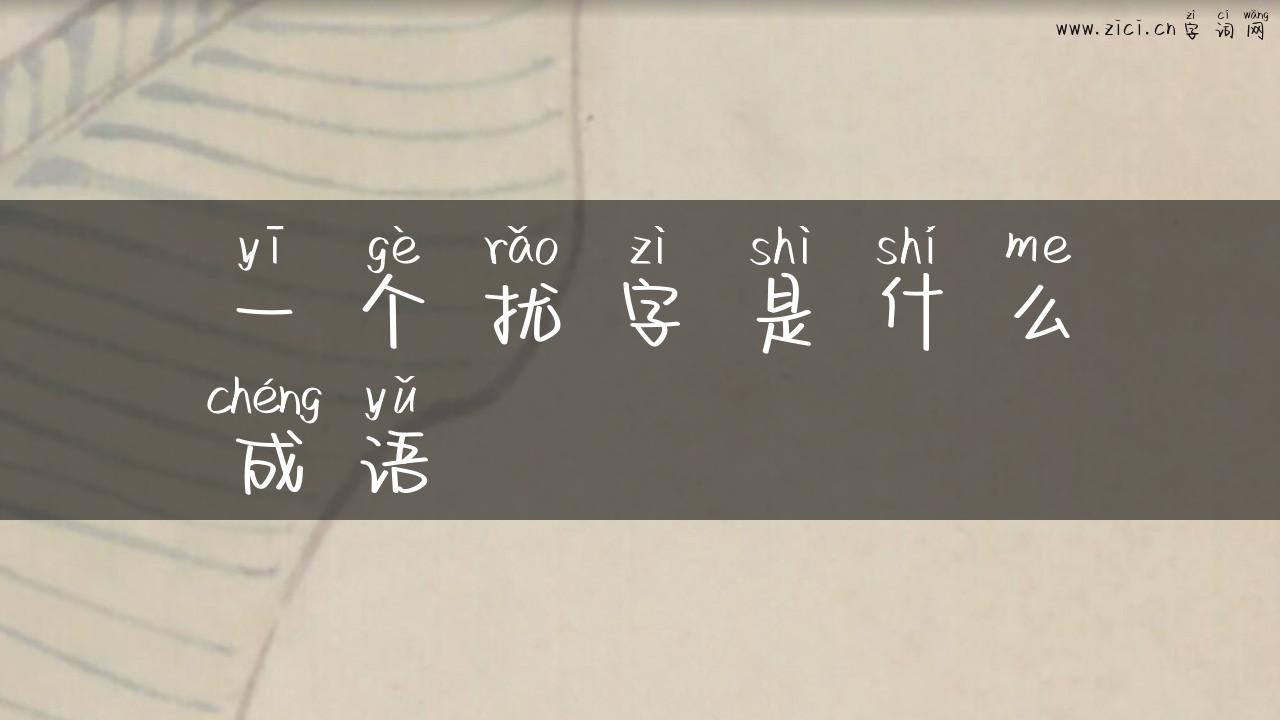 zì cí wǎng
www.zici.cn字词网
yī gè rǎo zì shì shí me
一个扰字是什么
chéng yǔ
成语